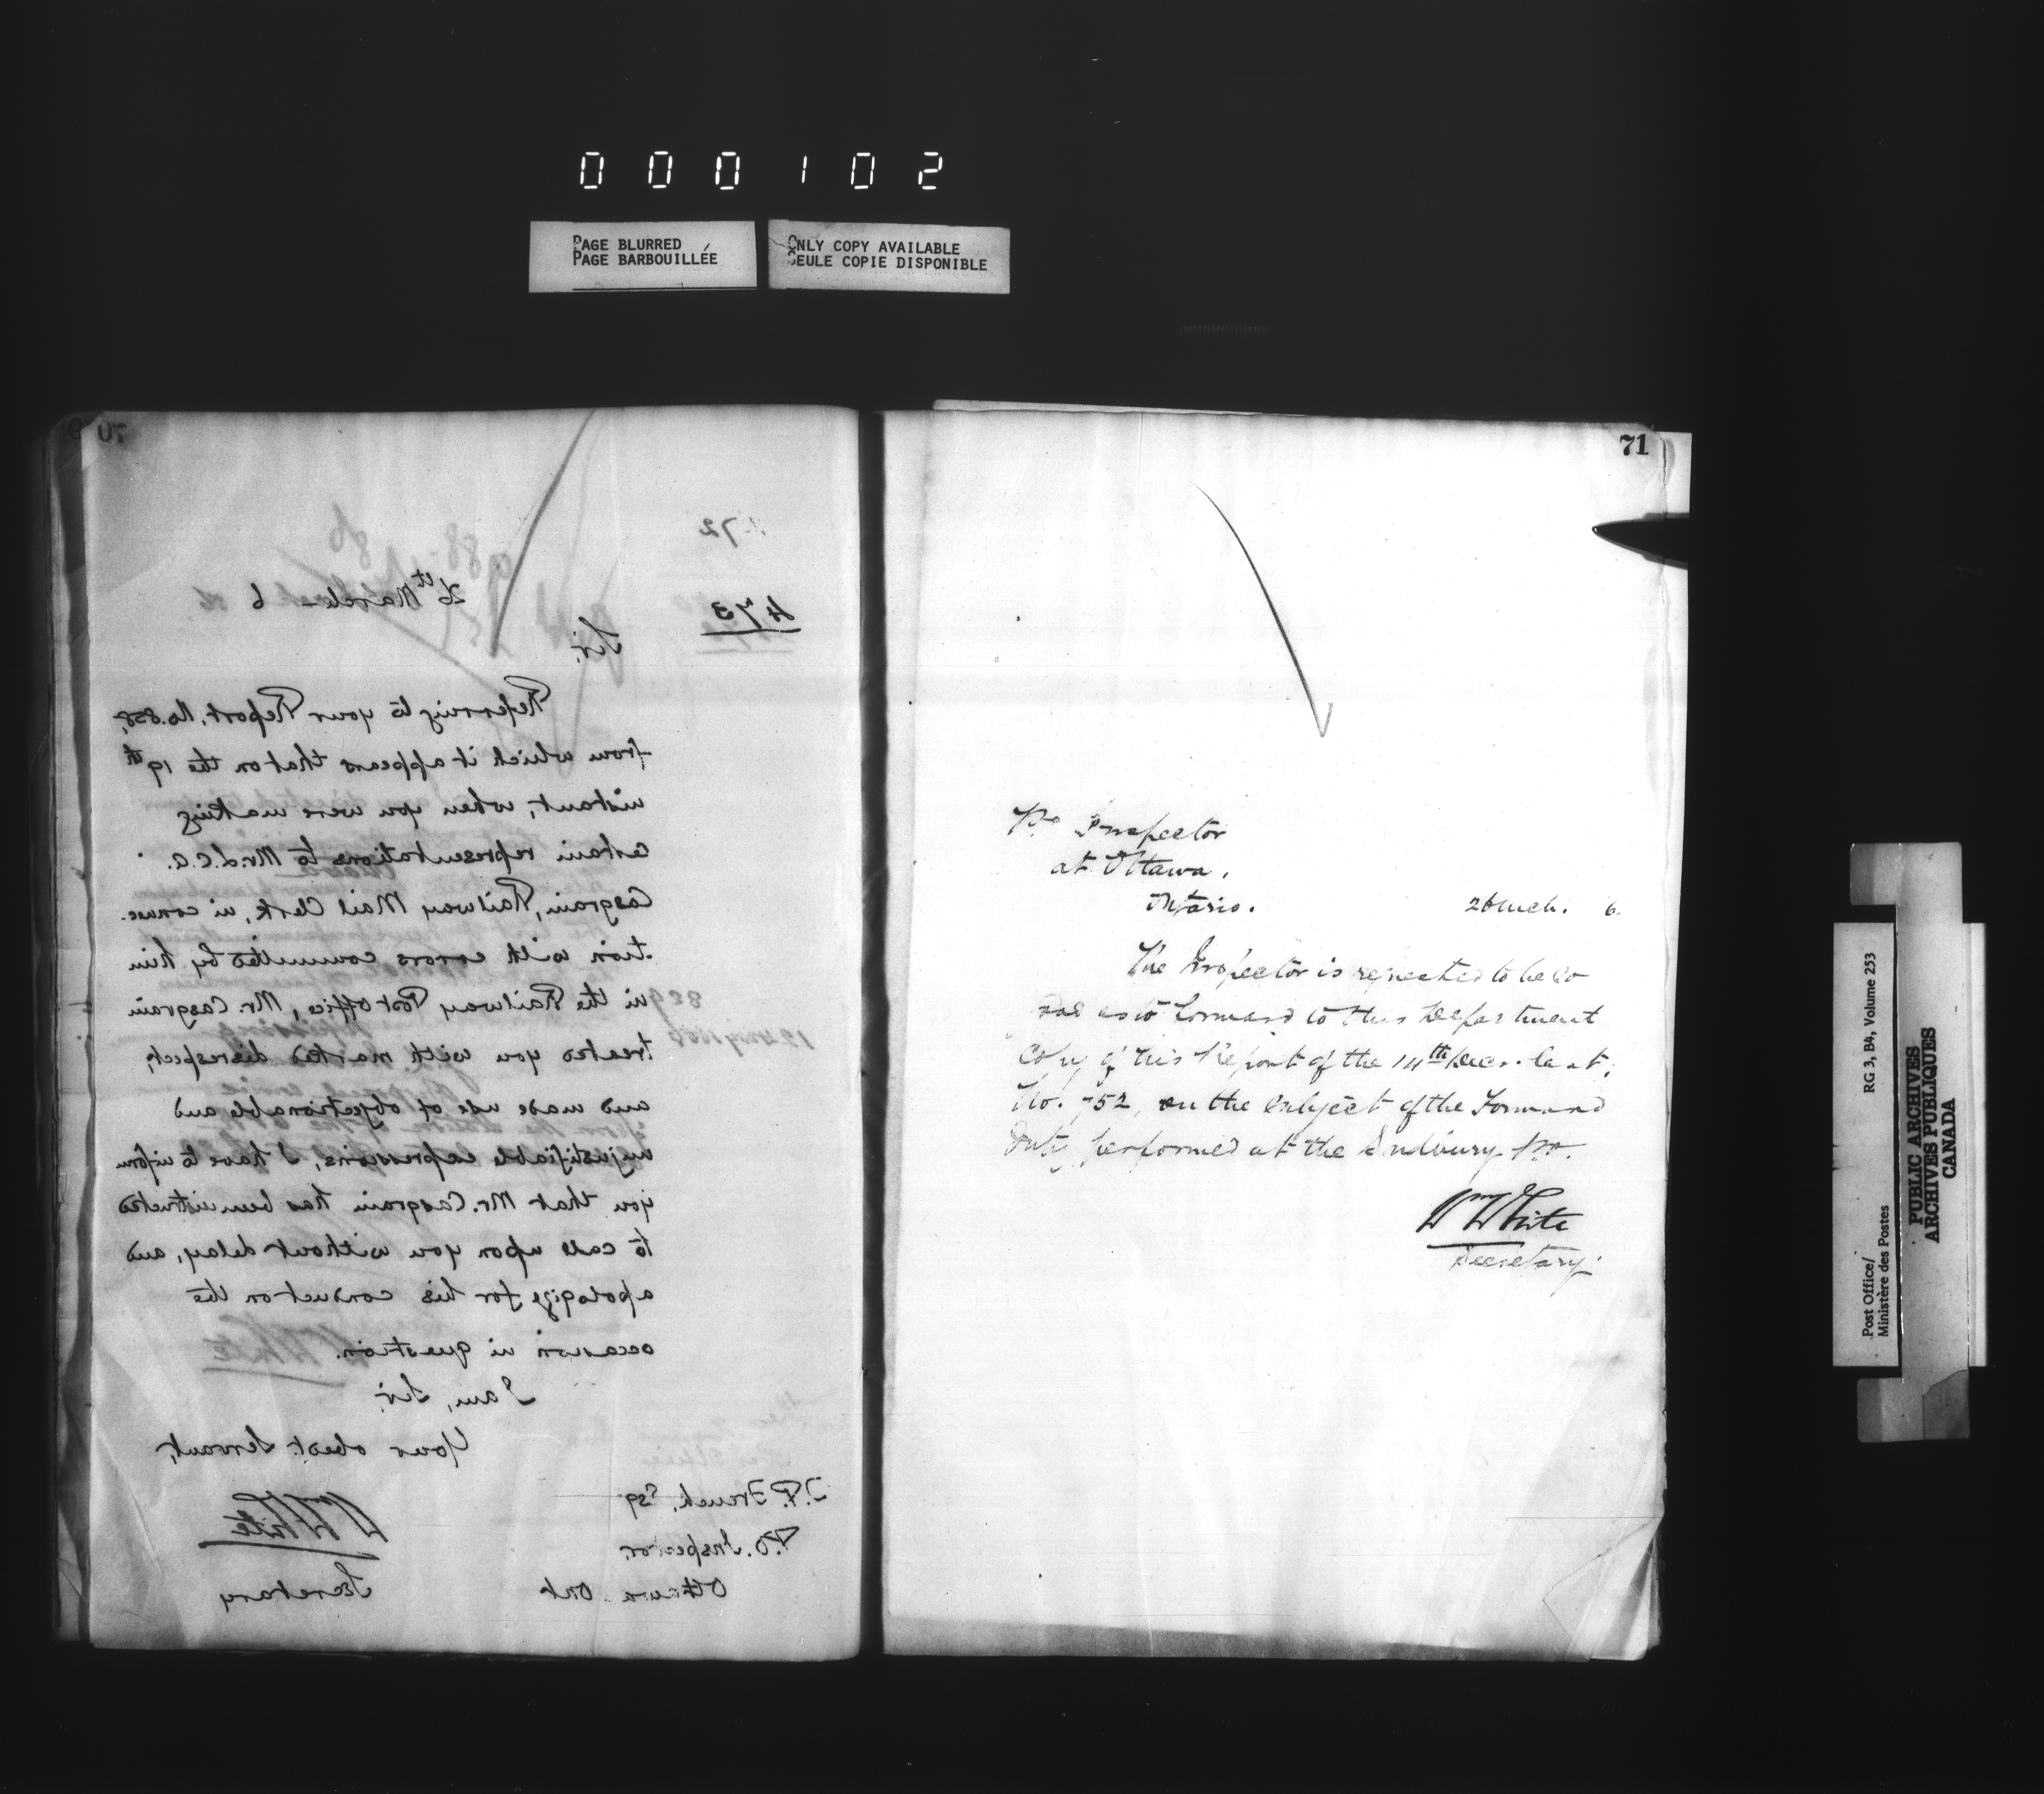 000102
PAGE BLURRED
PAGE BARBOUILLÉE
ONLY COPY AVAILABLE
SEULE COPIE DISPONIBLE
70
473
26th March 6
Sir,
Referring to your Report, No. 858,
from which it appears that on the 19th
instant, when you were making
certain representations to Mr. L.C.A.
Casgrain, Railway Mail Clerk, in connec-
tion with errors committed by him
in the Railway Post Office, Mr. Casgrain
treated you with marked disrespect,
and made use of objectionable and
unjustifiable expressions, I have to inform
you that Mr. Casgrain has been instructed
to call upon you without delay, and
apologize for his conduct on the
occasion in question.
I am, Sir,
Your obedt. Servant,
Wm White
Secretary
J.P. French, Esq
P.O. Inspector
Ottawa Ont
71
P.O. Inspector
at Ottawa,
Ontario.
26 Mch. 6.
The Inspector is requested to be so
good as to forward to this Department
Copy of his Report of the 14th Decr. last,
No. 752, on the subject of the Forward
Duty performed at the Sudbury P.O.
Wm White
Secretary.
Post Office/
Ministère des Postes
RG 3, B4, Volume 253
PUBLIC ARCHIVES
ARCHIVES PUBLIQUES
CANADA